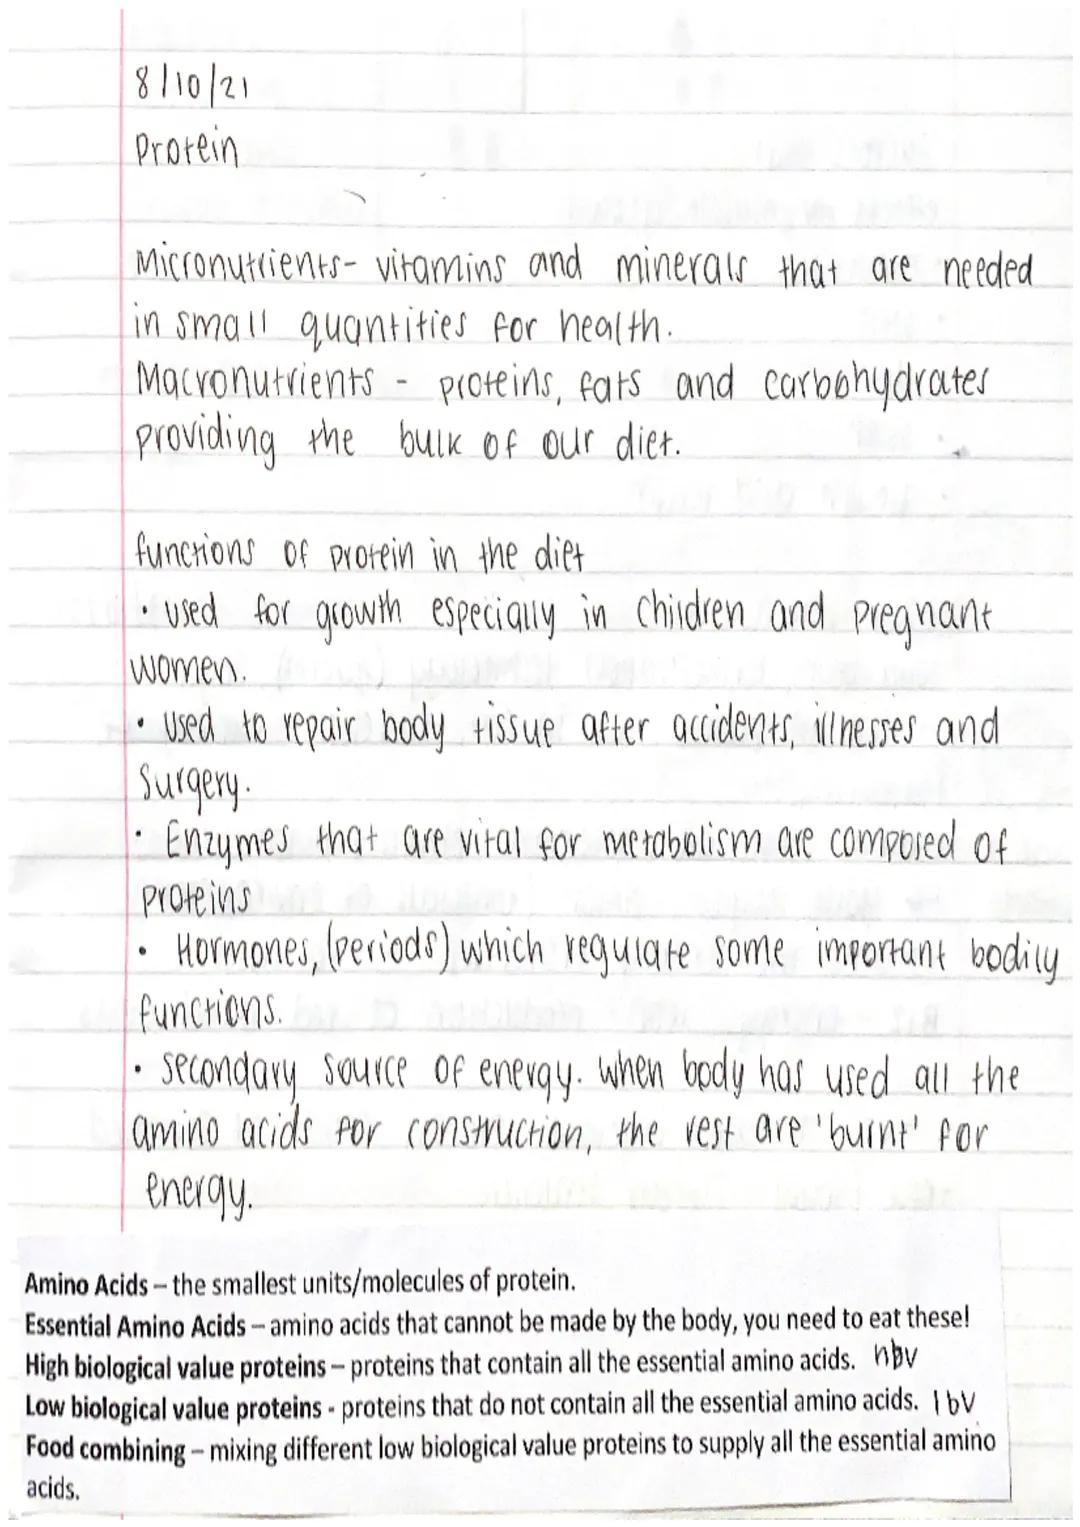 8/10/21
Protein
Micronutrients- vitamins and minerals that are needed
in small quantities for health.
Macronutrients - proteins, fats and carbohydrates
providing the bulk of our diet.
functions of protein in the diet
• used for growth especially in children and pregnant
women.
• used to repair body tissue after accidents, illnesses and
surgery.
• Enzymes that are vital for metabolism are composed of
proteins
• Hormones, (periods) which regulate some important bodily
functions.
• secondary source of energy. when body has used all the
amino acids for construction, the rest are 'burnt' for
energy.
Amino Acids – the smallest units/molecules of protein.
Essential Amino Acids – amino acids that cannot be made by the body, you need to eat these!
High biological value proteins – proteins that contain all the essential amino acids. hbv
Low biological value proteins - proteins that do not contain all the essential amino acids. lbv
Food combining – mixing different low biological value proteins to supply all the essential amino
acids.